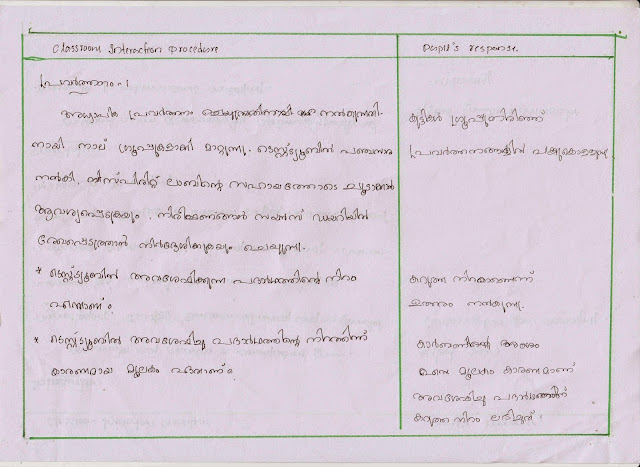 Classroom Interaction procedure
Pupil's response.
പ്രവർത്തനം - 1
അധ്യാപിക പ്രവർത്തനം ചെയ്യുന്നതിനായി നൽകുന്നതി-
നായി നാല് ഗ്രൂപ്പുകളാക്കി മാറ്റുന്നു. ടെസ്റ്റ്ട്യൂബിൽ പഞ്ചസാര
നൽകി, സ്പിരിറ്റ് ലാമ്പിന്റെ സഹായത്തോടെ ചൂടാക്കാൻ
ആവശ്യപ്പെടുകയും, നിരീക്ഷണങ്ങൾ സയൻസ് ഡയറിയിൽ
രേഖപ്പെടുത്താൻ നിർദ്ദേശിക്കുകയും ചെയ്യുന്നു.
* ടെസ്റ്റ്ട്യൂബിൽ അവശേഷിക്കുന്ന പദാർത്ഥത്തിന്റെ നിറം
എന്താണ് ?
* ടെസ്റ്റ്ട്യൂബിൽ അവശേഷിച്ച പദാർത്ഥത്തിന്റെ നിറത്തിന്
കാരണമായ മൂലകം ഏതാണ് ?
കുട്ടികൾ ഗ്രൂപ്പുതിരിഞ്ഞ്
പ്രവർത്തനങ്ങളിൽ പങ്കുകൊള്ളുന്നു
കറുത്ത നിറമാണെന്ന്
ഉത്തരം നൽകുന്നു.
കാർബണിന്റെ അംശം
എന്ന മൂലകം കാരണമാണ്
അവശേഷിച്ച പദാർത്ഥത്തിന്
കറുത്ത നിറം ലഭിച്ചത്.